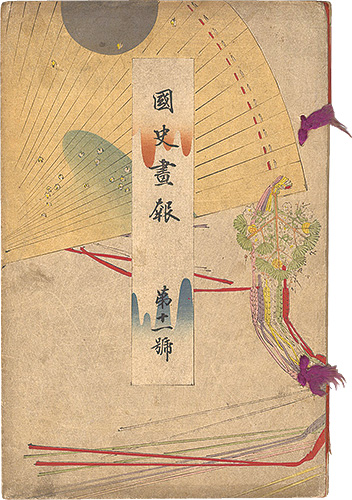 國史畫報
第十一號